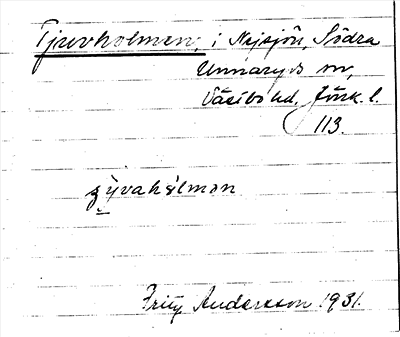 Tjuvholmen, i Nejsjön, Södra
Unnaryds sn,
Västbo hd, Jönk. l.
113.
ʒyvahylmən
Fritz Andersson 1931.